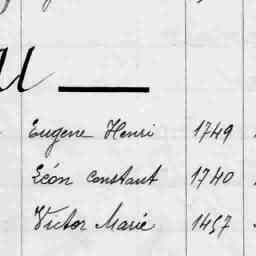 Eugene Henri 1749
Léon Constant 1740
Victor Marie 1457